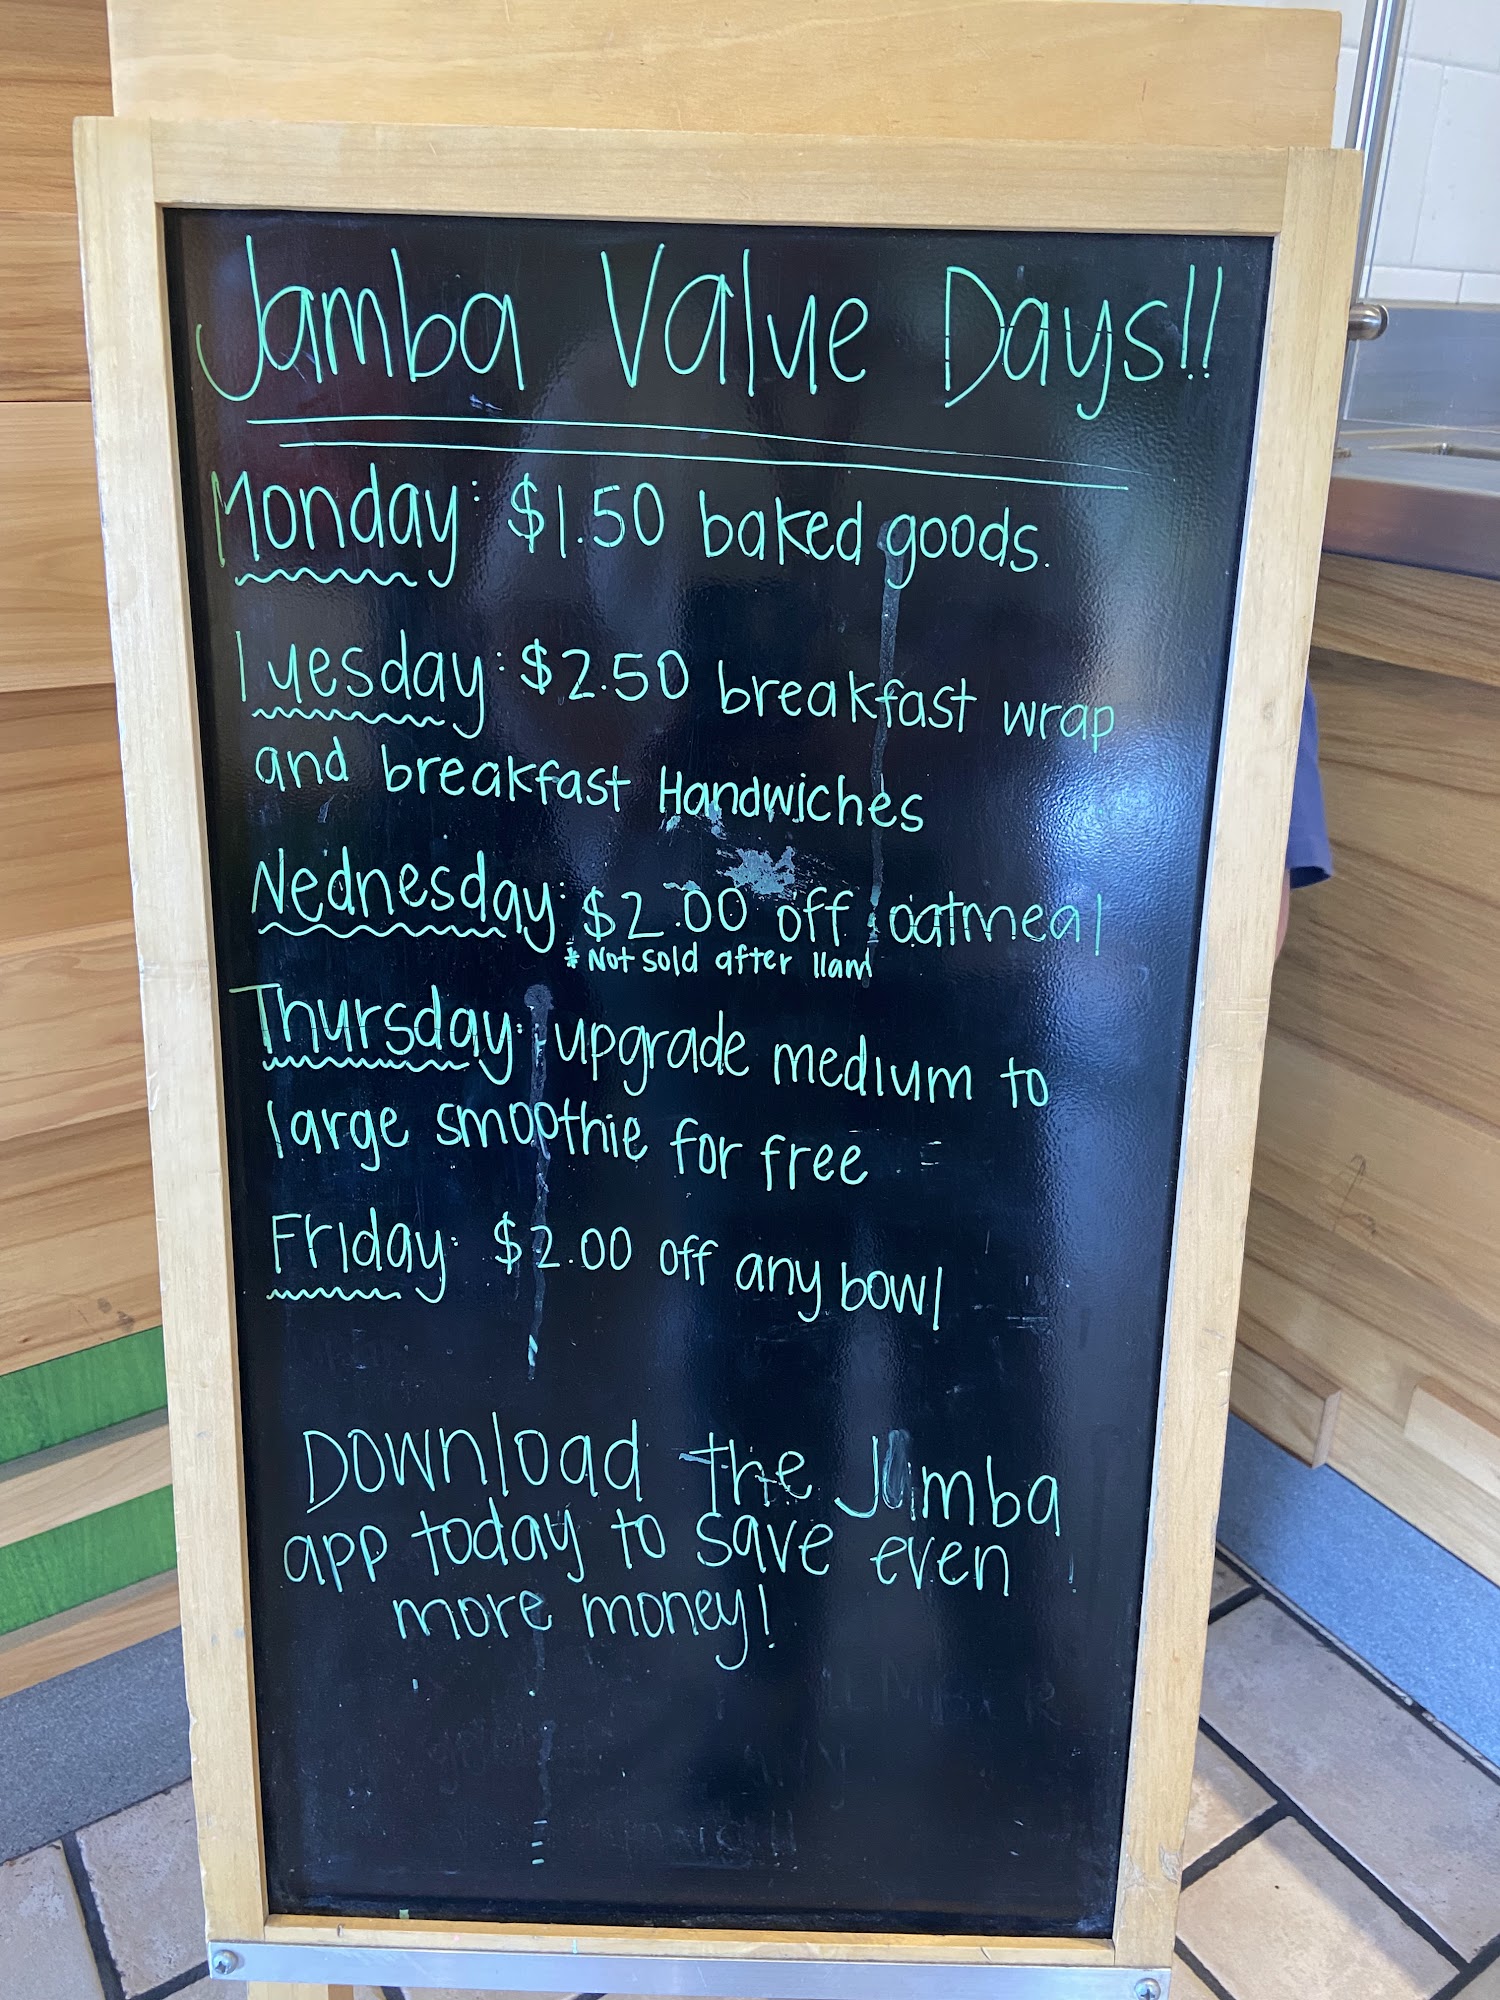 Jamba Value Days!!
Monday: $1.50 baked goods.
Tuesday: $2.50 breakfast wrap
and breakfast Handwiches
Wednesday: $2.00 off oatmeal
* Not sold after 11am
Thursday: upgrade medium to
large smoothie for free
Friday: $2.00 off any bowl
Download the Jamba
app today to save even
more money!